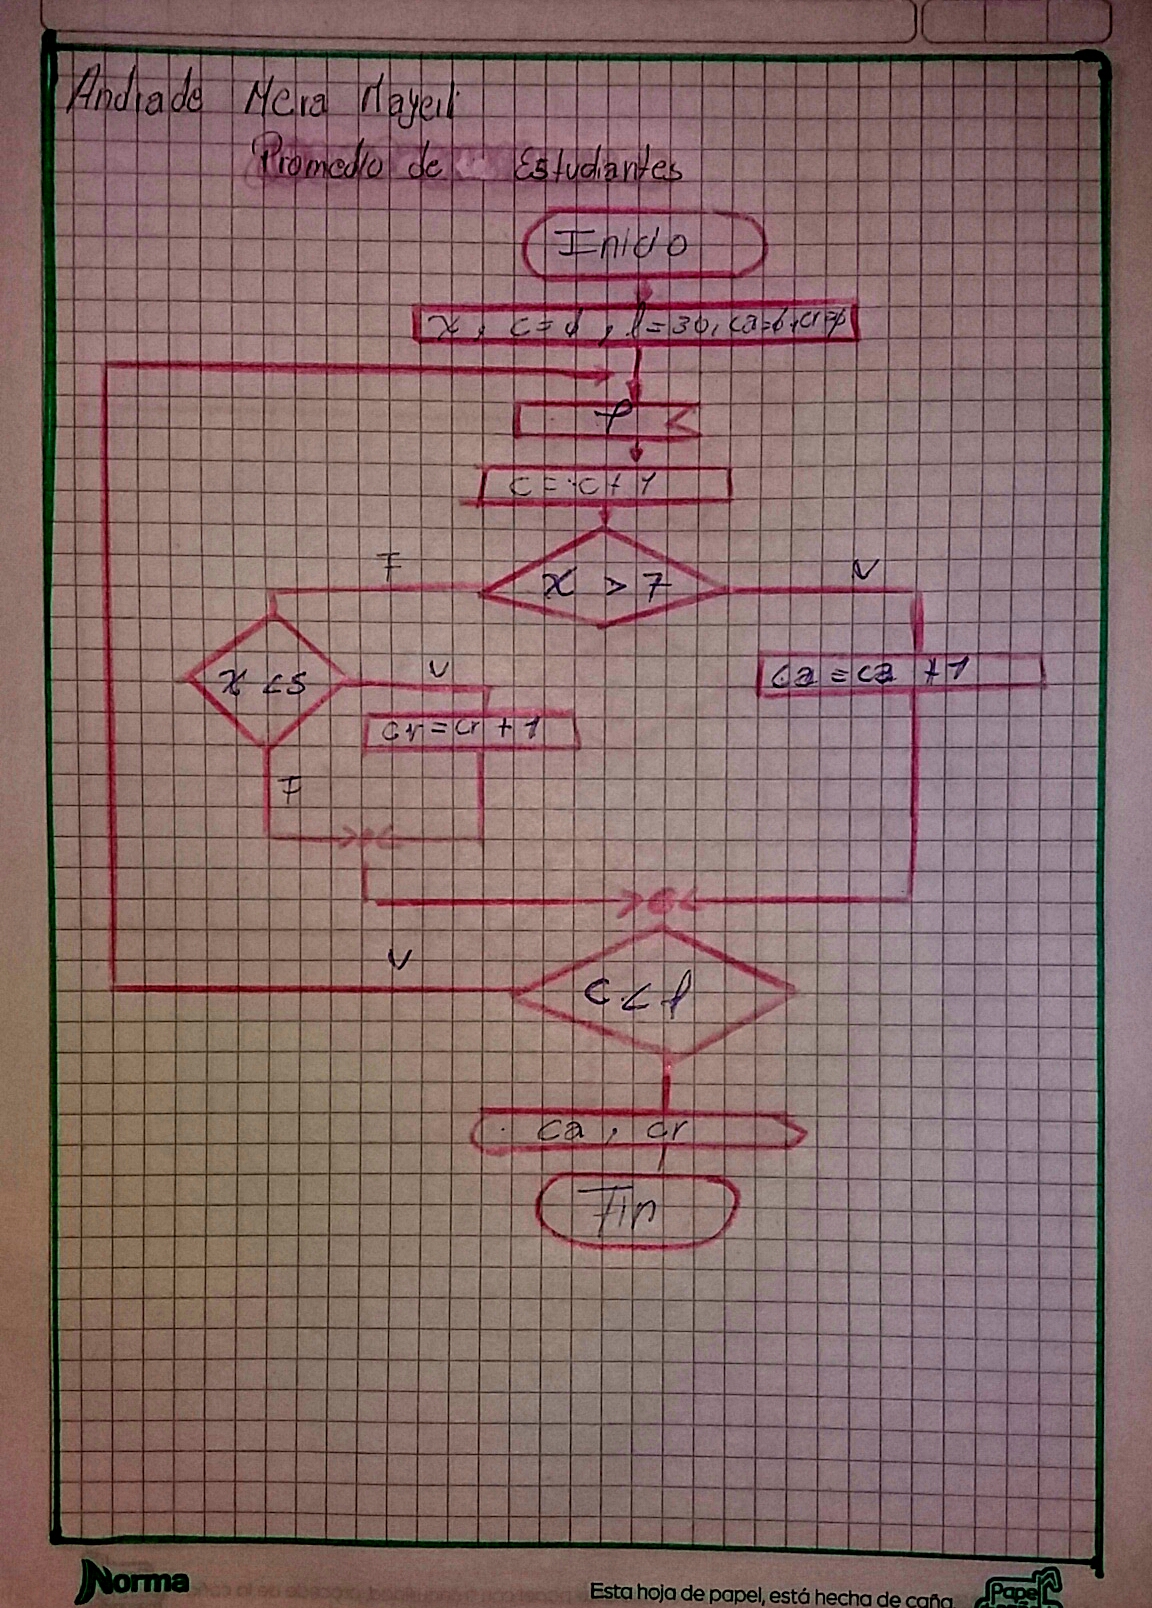 Andrade Mera Mayerli
Promedio de Estudiantes
Inicio
x, c=ø, l=3ø, ca=ø, cr=ø
c = c + 1
F
x > 7
V
x < 5
V
ca = ca + 1
cr = cr + 1
F
V
c < l
ca, cr
Fin
Norma
Esta hoja de papel, está hecha de caña.
Papel